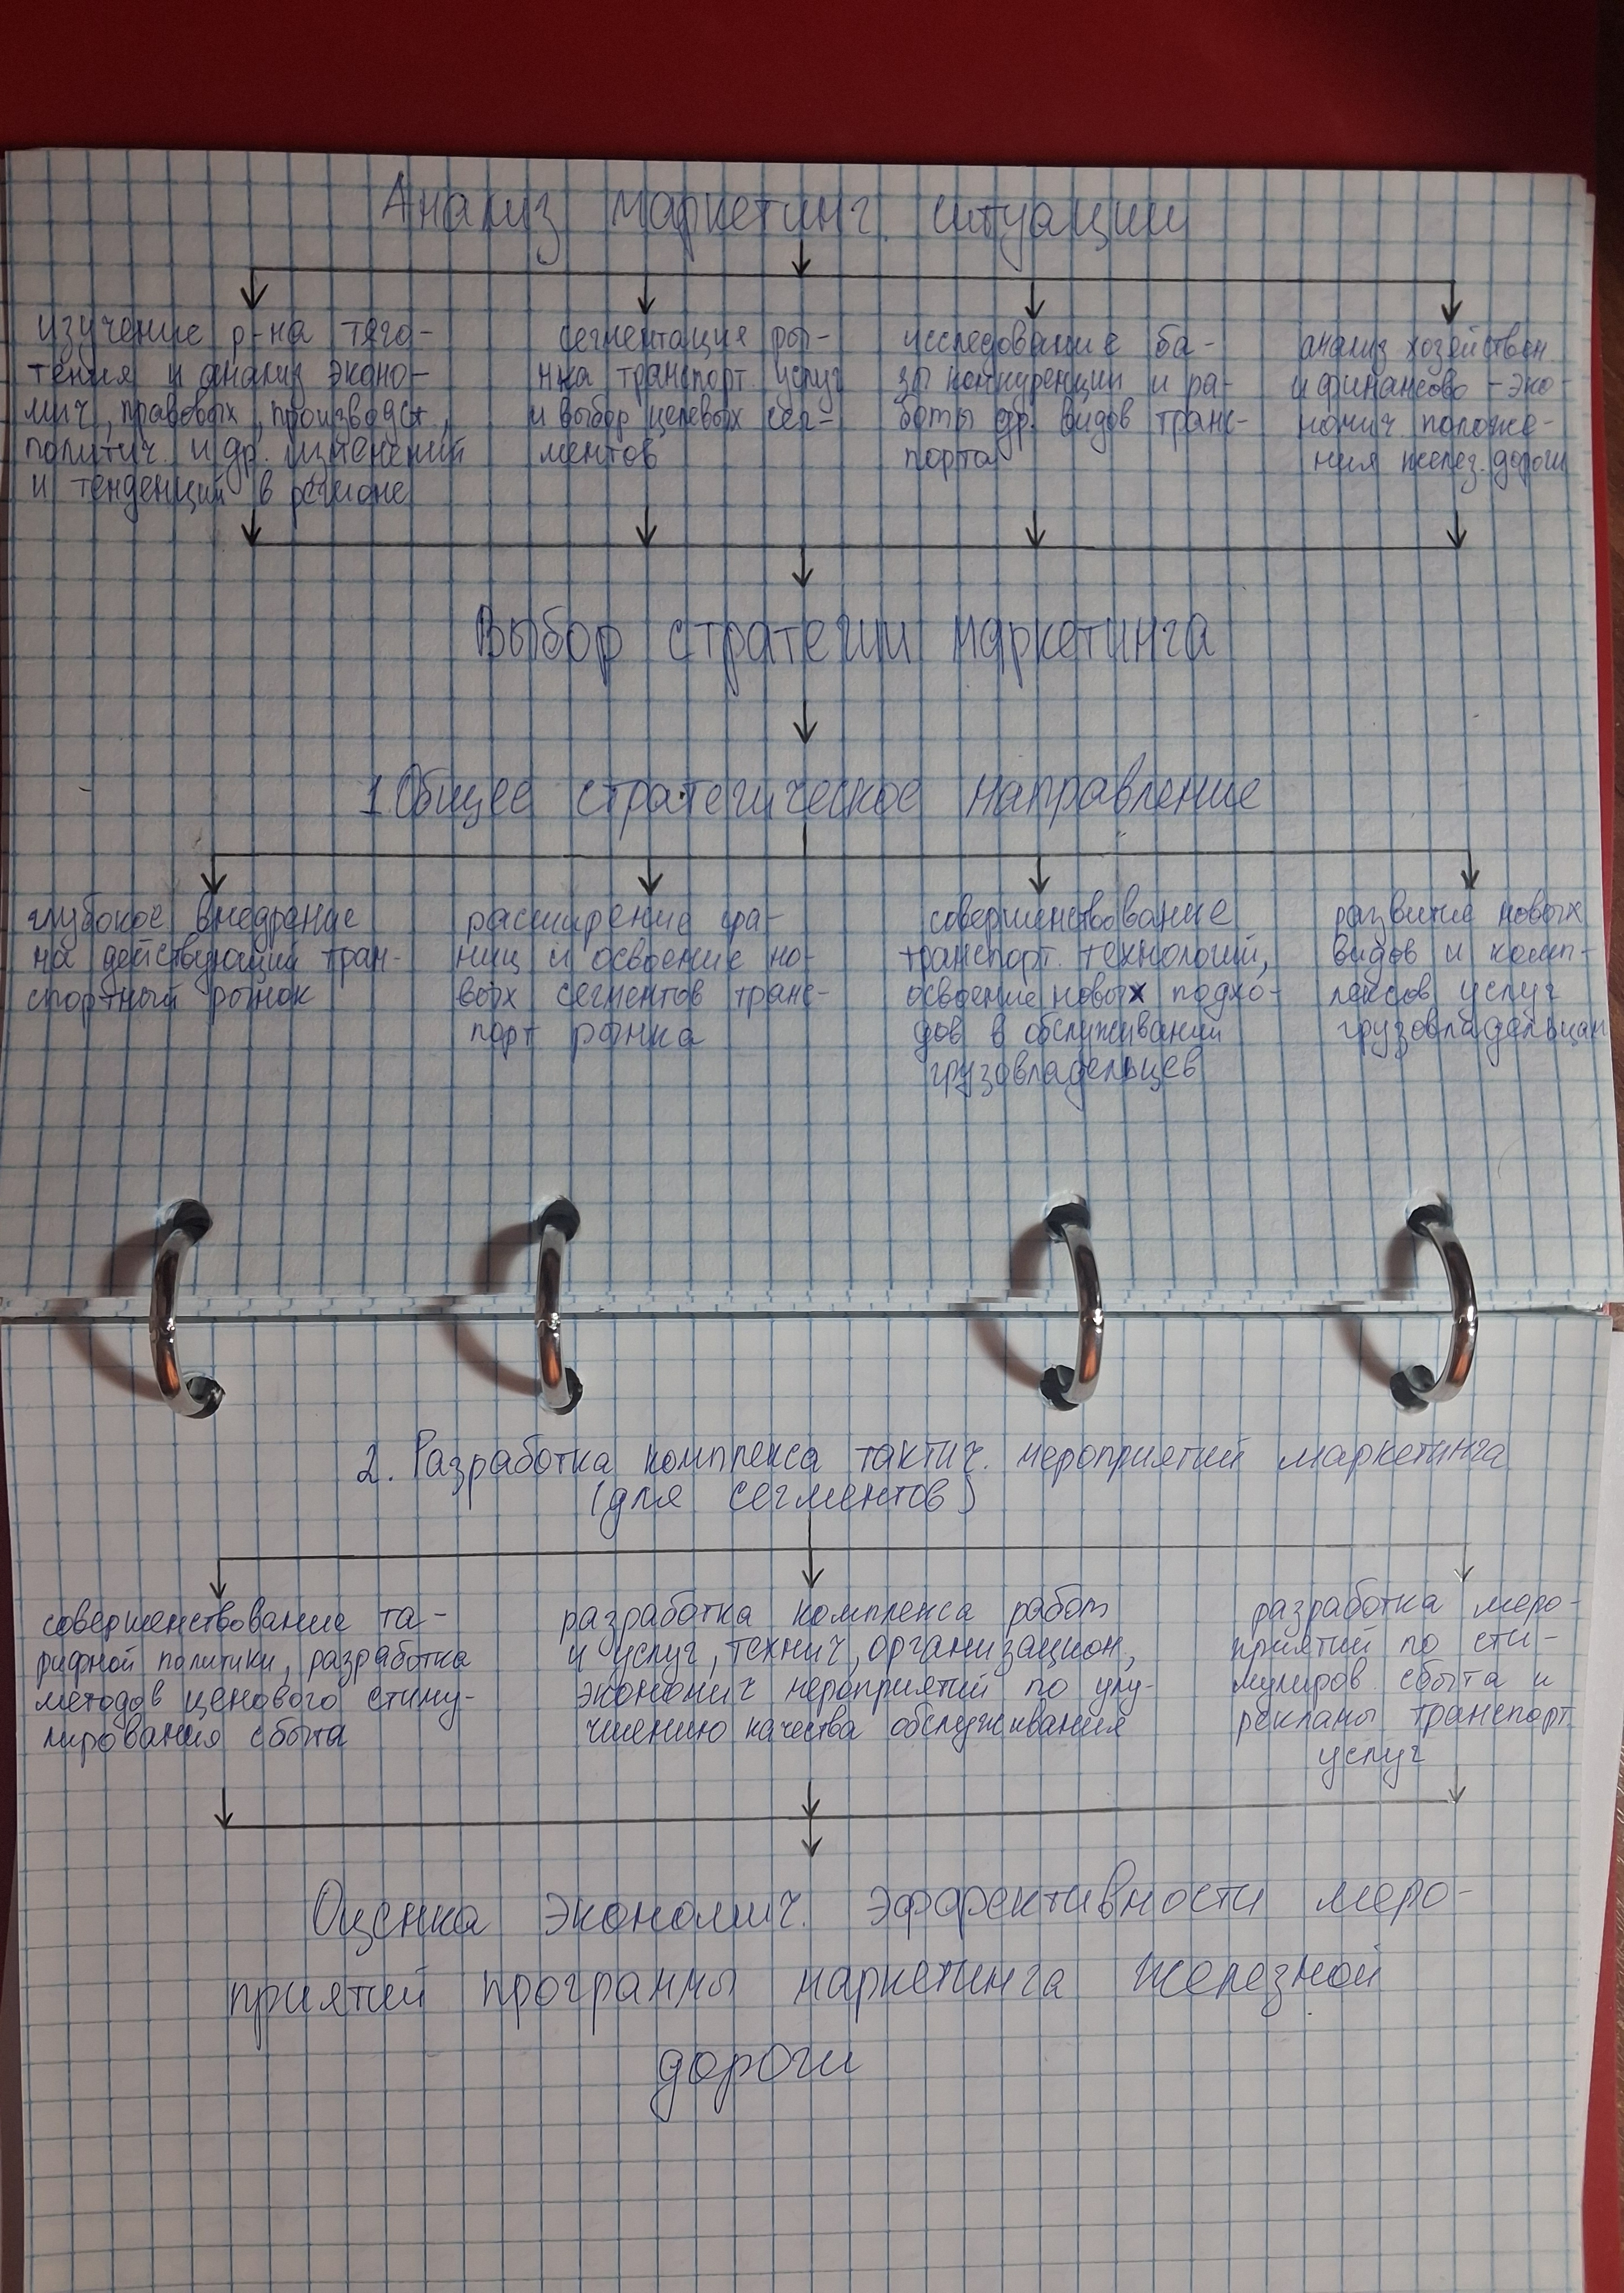 Анализ маркетинг. ситуации
изучение р-на тяго-
тения и анализ эконо-
мич, правовых, производст,
политич. и др. изменений
и тенденций в регионе
сегментация ры-
нка транспорт. услуг
и выбор целевых сег-
ментов
исследование ба-
зы конкуренции и ра-
боты др. видов транс-
порта
анализ хозяйствен.
и финансово-эко-
номич. положе-
ния желез. дороги
Выбор стратегии маркетинга
1. Общее стратегическое направление
глубокое внедрение
на действующий тран-
спортный рынок
расширение гра-
ниц и освоение но-
вых сегментов транс-
порт рынка
совершенствование
транспорт. технологий,
освоение новых подхо-
дов в обслуживании
грузовладельцев
развитие новых
видов и комп-
лексов услуг
грузовладельцам
2. Разработка комплекса тактич. мероприятий маркетинга
(для сегментов)
совершенствование та-
рифной политики, разработка
методов ценового стиму-
лирования сбыта
разработка комплекса работ
и услуг, технич, организацион,
экономич мероприятий по улу-
чшению качества обслуживания
разработка меро-
приятий по сти-
мулиров. сбыта и
рекламы транспорт.
услуг
Оценка экономич. эффективности меро-
приятий программы маркетинга железной
дороги